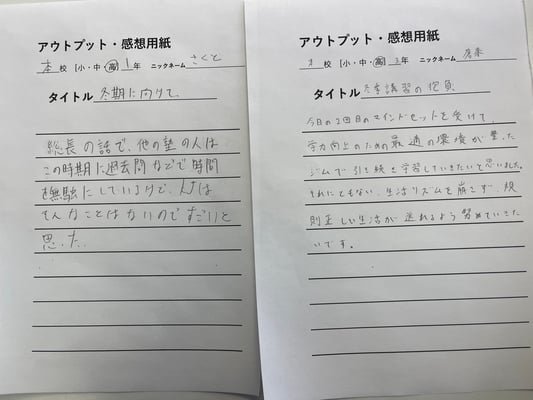 アウトプット・感想用紙
本 校 小・中・高 1年 ニックネーム さくと
タイトル 冬期に向けて。
総長の話で、他の塾の人は
この時期に過去問などで時間
を無駄にしているけど、人は
そんなことはないのですごいと
思った。
アウトプット・感想用紙
校 小・中・高 3年 ニックネーム
タイトル 冬季講習の抱負
今日の2回目のマインドセットを受けて、
学力向上のための最適の環境が整った
ジムで引き続き学習していきたいと思いました。
それにともない、生活リズムを崩さず、規
則正しい生活が送れるよう努めていきた
いです。